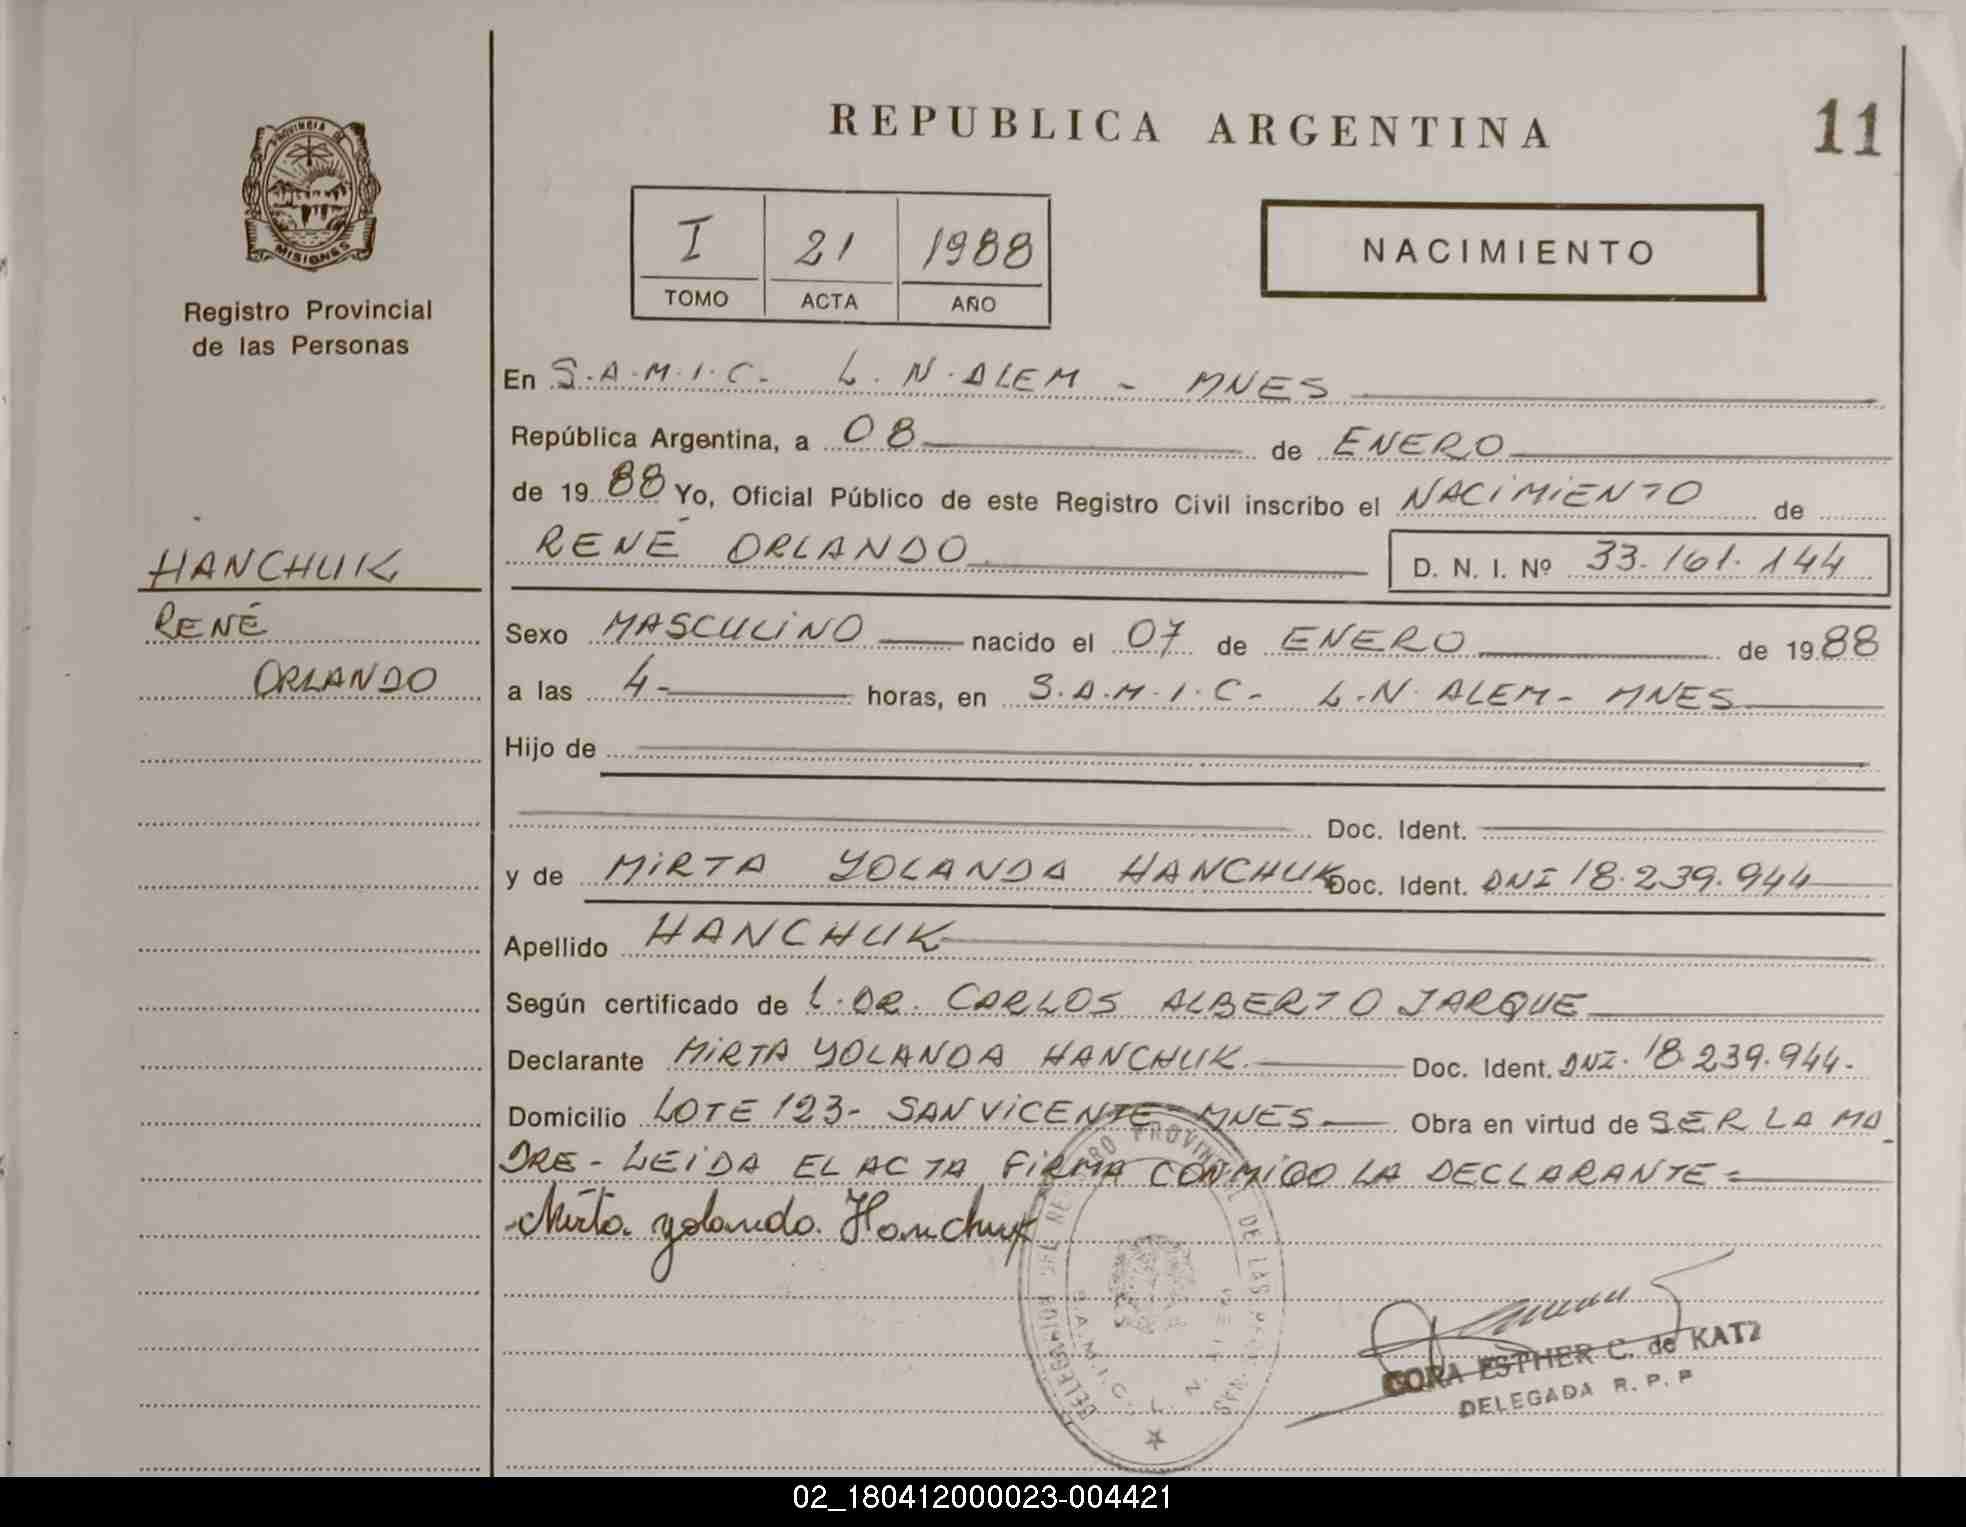 REPUBLICA ARGENTINA
11
PROVINCIA DE
MISIONES
Registro Provincial
de las Personas
I 21 1988
TOMO ACTA AÑO
NACIMIENTO
En S.A.M.I.C. L.N. ALEM - MNES
República Argentina, a 08 de ENERO
de 1988 Yo, Oficial Público de este Registro Civil inscribo el NACIMIENTO de
RENÉ ORLANDO D. N. I. Nº 33.161.144
HANCHUK
RENÉ
ORLANDO
Sexo MASCULINO nacido el 07 de ENERO de 1988
a las 4- horas, en S.A.M.I.C- L.N. ALEM- MNES
Hijo de
Doc. Ident.
y de MIRTA YOLANDA HANCHUK Doc. Ident. DNI 18.239.944
Apellido HANCHUK
Según certificado de DR. CARLOS ALBERTO JARQUE
Declarante MIRTA YOLANDA HANCHUK. Doc. Ident. DNI. 18.239.944.
Domicilio LOTE 123- SAN VICENTE- MNES Obra en virtud de SER LA MA_
DRE - LEIDA EL ACTA FIRMA CONMIGO LA DECLARANTE=
Mirta Yolanda Hanchuk
DELEGADA R. P. P
CORA ESTHER C. de KATZ
02_180412000023-004421